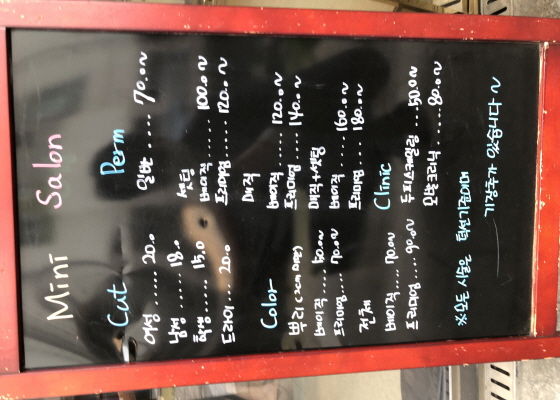 Mini Salon
Cut
여성 ...... 20.0
남성 ...... 18.0
학생 ...... 15.0
드라이 ... 20.0
Perm
일반 ..... 70.0~
셋팅
베이직 ..... 100.0~
프리미엄 ..... 120.0~
매직
베이직 ..... 120.0~
프리미엄 .... 140.0~
매직+셋팅
베이직 ..... 160.0~
프리미엄 .... 180.0~
Color
뿌리
베이직 ..... 50.0~
프리미엄 .... 70.0~
전체
베이직 .... 70.0~
프리미엄 .... 90.0~
Clinic
두피스케일링 ... 50.0~
모발크리닉 .... 80.0~
※모든 시술은 턱선기준이며
기장추가 있습니다~